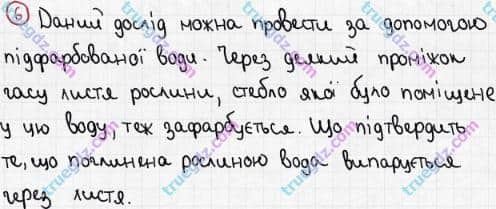 6 Даний дослід можна провести за допомогою
підфарбованої води. Через деякий проміжок
часу листя рослини, стебло якої було поміщене
у цю воду, теж зафарбується. Що підтвердить
те, що поглинена рослиною вода випарується
через листя.
truegdz.com